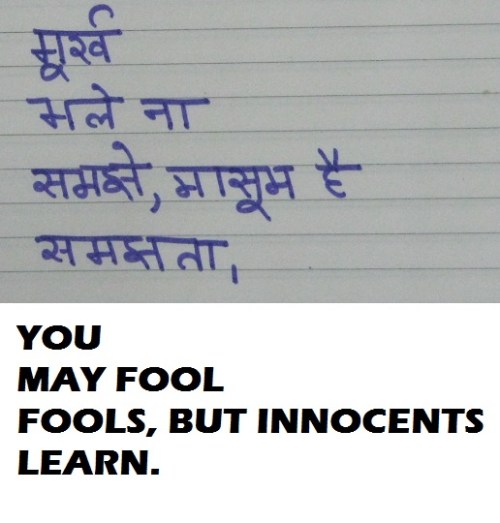 मूर्ख
भले ना
समझे, मासूम है
समझता,
YOU
MAY FOOL
FOOLS, BUT INNOCENTS
LEARN.